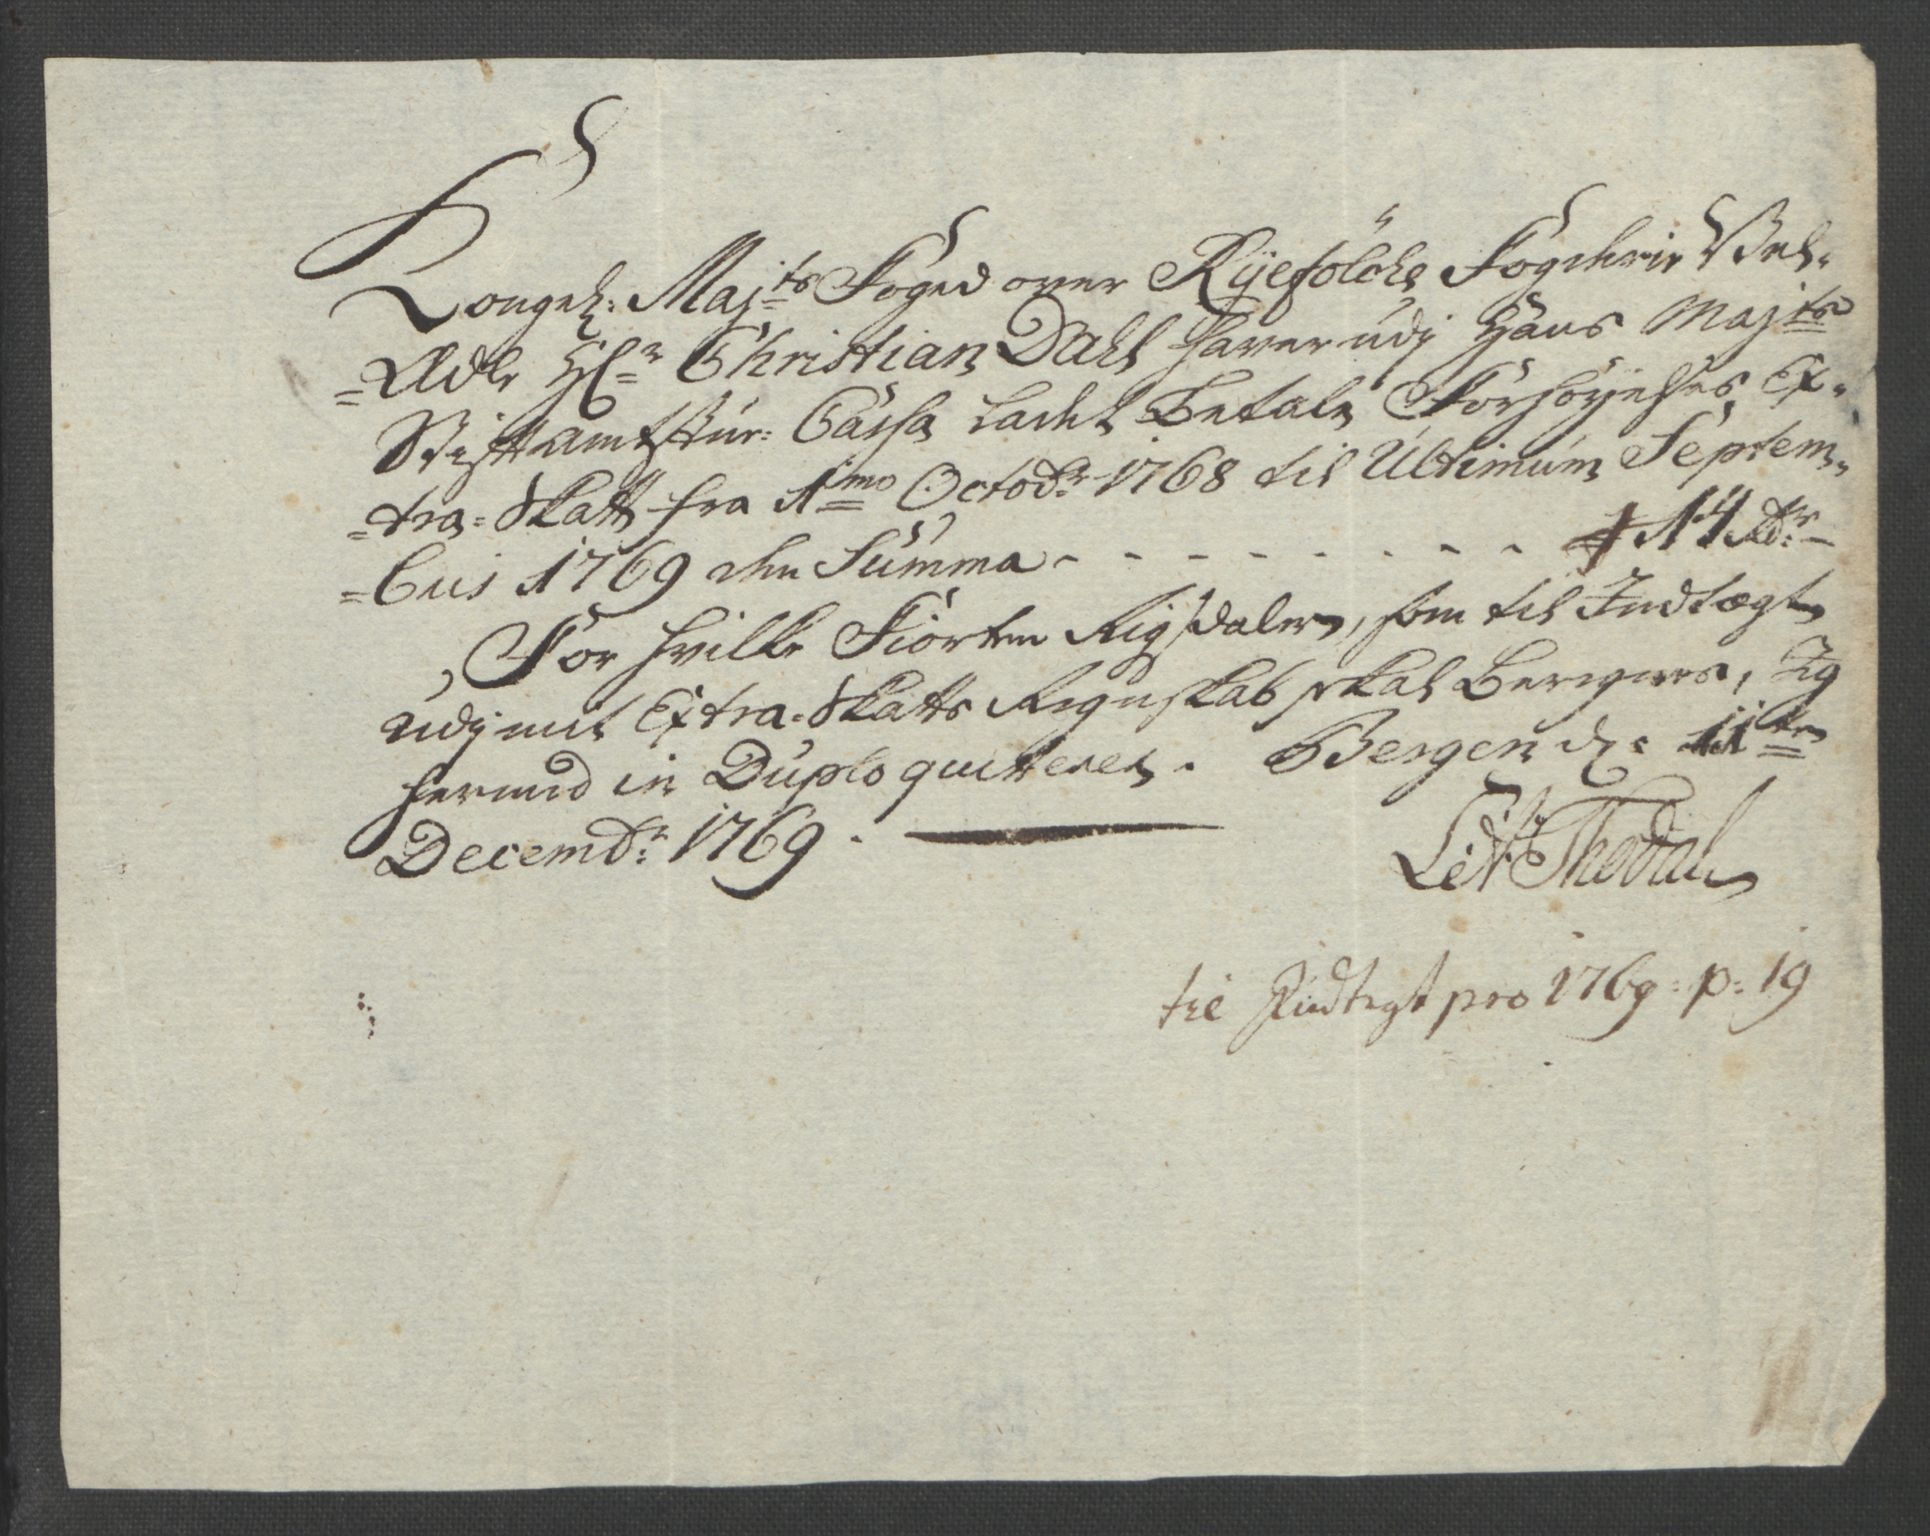 Kongel: Maj:ts Foged over Ryefölche Fogderie Vel-
=Ædle Hr: Christian Dahl haver udj Hans Majts
Stiftamtstuе: Cassa ladet betale Forhöyelses Ex-
=tra=Skatt fra 1mo Octobr: 1768 til Ultimum Septem-
=bris 1769 den Summa - - - - - - - - - 14 Rdr: -
For hvilke Fiorten Rigsdaler, som til Indtægt
udj mit Extra=Skatts Regnskab skal Beregnes, Jeg
hermed in Duplo quitterer. Bergen d: 11te
Decembr: 1769.
til Indtegt pro 1769: p: 19